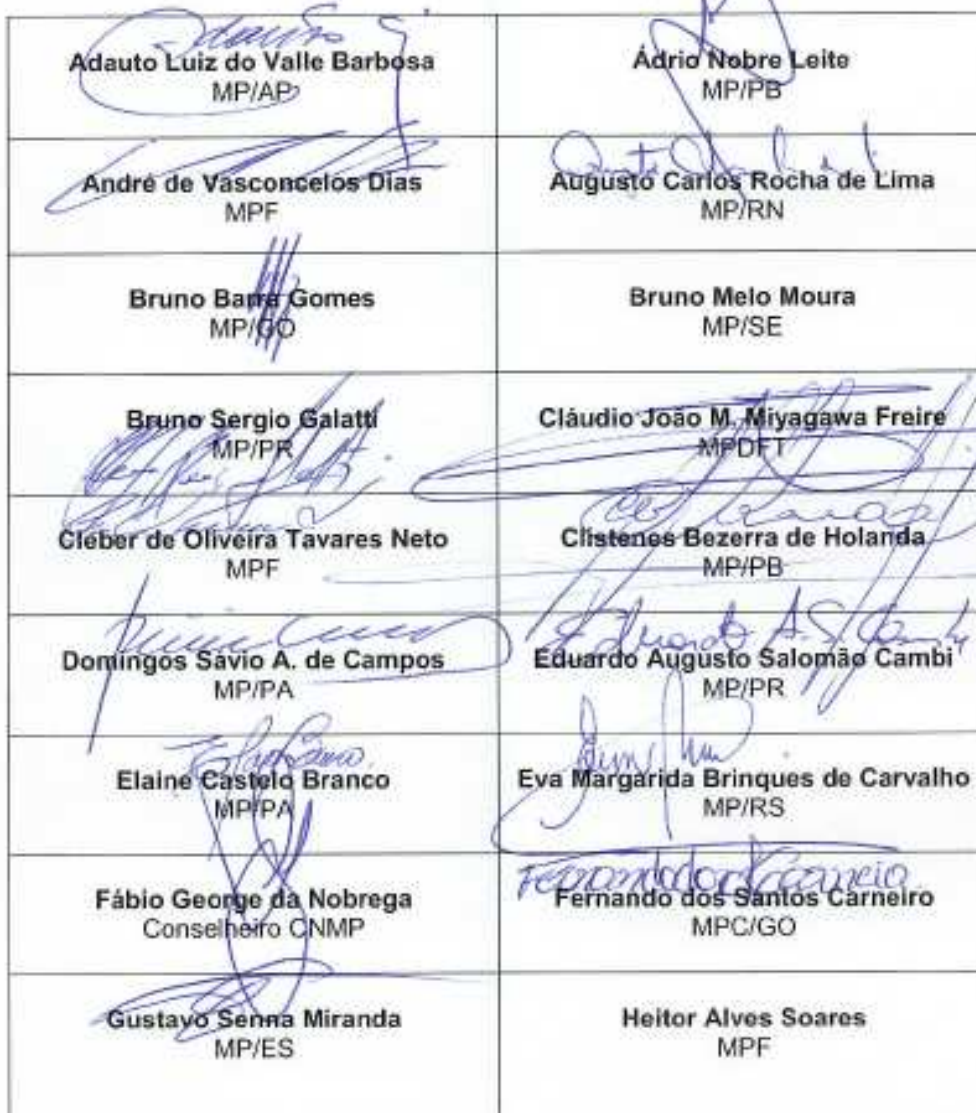 Adauto Luiz do Valle Barbosa
MP/AP
Ádrio Nobre Leite
MP/PB
André de Vasconcelos Dias
MPF
Augusto Carlos Rocha de Lima
MP/RN
Bruno Barra Gomes
MP/GO
Bruno Melo Moura
MP/SE
Bruno Sergio Galatti
MP/PR
Cláudio João M. Miyagawa Freire
MPDFT
Cleber de Oliveira Tavares Neto
MPF
Clístenes Bezerra de Holanda
MP/PB
Domingos Sávio A. de Campos
MP/PA
Eduardo A. S. Cambi
Eduardo Augusto Salomão Cambi
MP/PR
Elaine Castelo Branco
MP/PA
Eva Margarida Brinques de Carvalho
MP/RS
Fábio George da Nobrega
Conselheiro CNMP
Fernando dos Santos Carneiro
MPC/GO
Gustavo Senna Miranda
MP/ES
Heitor Alves Soares
MPF